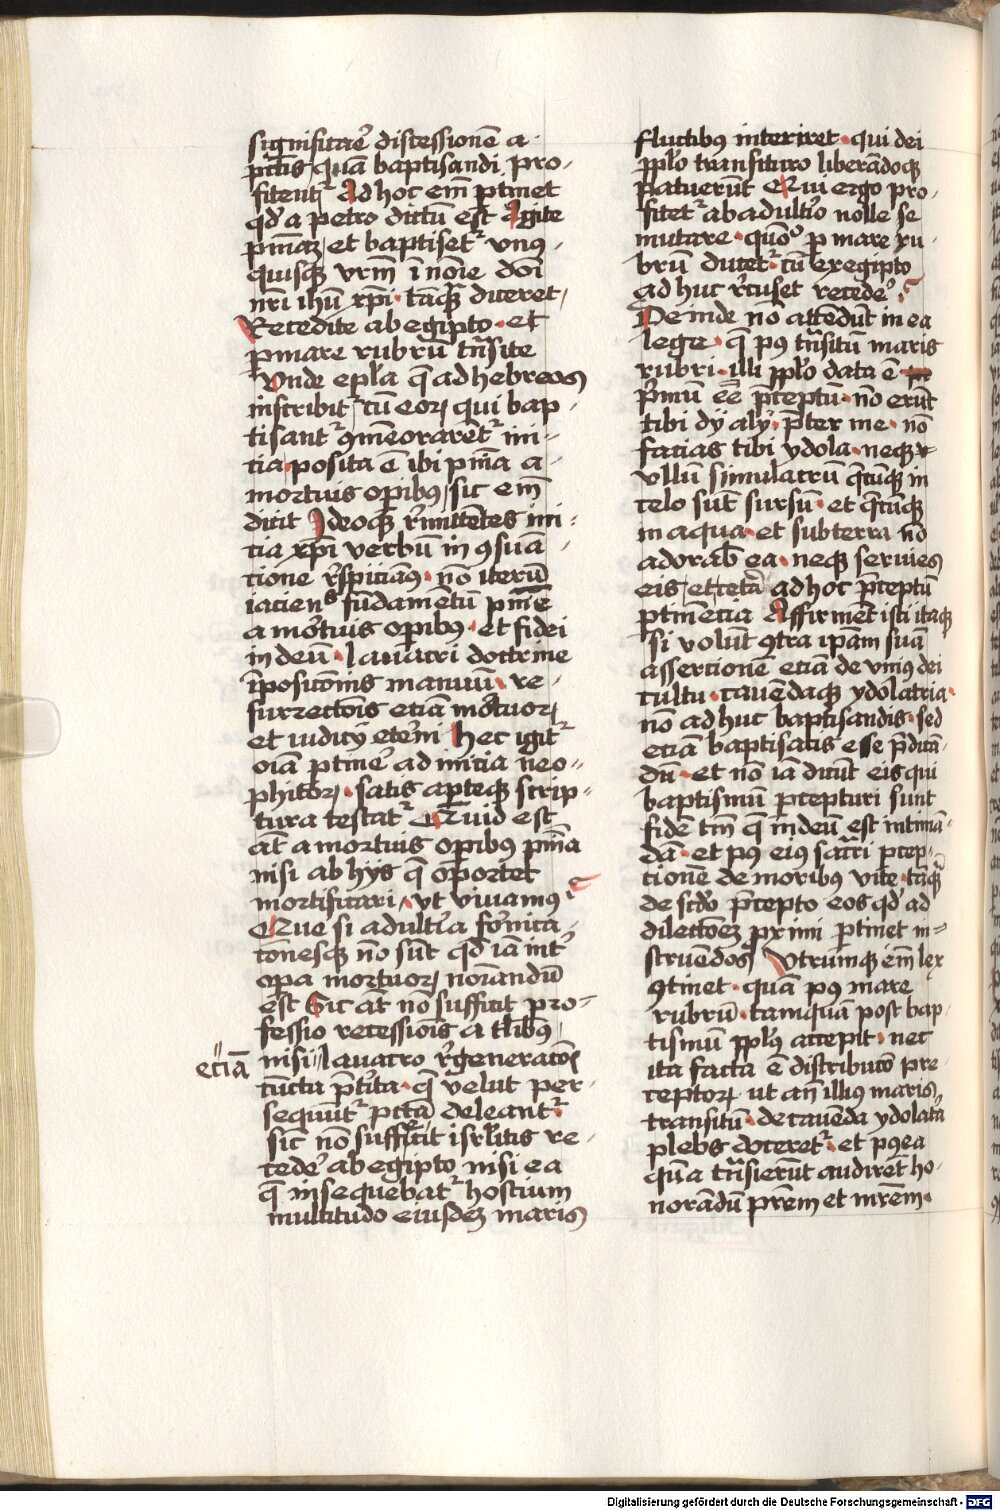 significare discessionē a
pctīs quā baptisandi pro-
fitent᷑ Ad hoc em̄ ptinet
qd̓ a petro dictū est Agite
pniāz et baptiset᷑ vnꝰ-
quisqꝫ vrm̄ ī noīe dn̄i
nr̄i ihū xp̄i tāqꝫ diceret
Recedite ab egipto et
p mare rubrū trn̄site
Vnde ep̄la q̄ ad hebreos
inscribit᷑ cū eoꝝ qui bap-
tisant᷑ ꝯmēorarēt᷑ ini-
tia posita ē ibi pn̄ia a
mortuis opibꝰ sic em̄
dicit Ideoqꝫ r̓mittētes ini-
tia xp̄i verbū in ꝯsuā-
tione r̓spiciāꝰ nō iterū
iacienˢ fūdamētū pn̄ie
a mo̓tuis opibꝰ et fidei
in deū lauacri doctrine
īpositōnis manuū re-
surrectōis etiā mo̓tuoꝝ
et iudicÿ et̓ni Hec igit᷑
oīa ptine̓ ad initia neo-
phitoꝝ satis apteqꝫ scrip-
tura testat᷑ Quid est
āt a mortuis opibꝰ pn̄ia
nisi ab hÿs q̄ oportet
mortificari vt viuamꝰ
Que si adult̓ia fornica-
tōnesqꝫ nō sūt qd̓ iā int̓
opa mortuoꝝ noīandū
est Sic āt nō sufficit pro-
fessio recessiōis a tl̓ibꝰ
nisi lauacro r̓generatōis
etiā
cūcta pt̓ita q̄ velut per-
sequūt᷑ pctā deleant᷑
sic nō sufficit isrl̓itis re-
cede̓ ab egipto nisi ea
q̄ insequebat᷑ hostium
multitudo eiusdeꝫ maris
fluctibꝰ interiret qui dei
pplo̓ transituro liberādoqꝫ
patuerūt Qui ergo pro-
fitet᷑ ab adult̓io nolle se
mutare quōº p mare ru-
brū ducet᷑ cū ex egipto
ad huc r̓cuset recede̓
Deinde nō attēdūt in ea
lege q̄ pꝰ trn̄sitū maris
rubri illi pplo̓ data ē
p̓mū eē p̄ceptū nō erūt
tibi dÿ alÿ p̄ter me nō
facias tibi ydola neqꝫ
vllū simulacrū q̄cūqꝫ in
celo sūt sursū et q̄cūqꝫ
in aqua et sub terra nō
adorab̄ ea neqꝫ seruies
eis et cetā ad hoc p̄ceptū
ptinētia Affirmēt isti itaqꝫ
si volūt ꝯtra ipām suā
assertionē etiā de vniꝰ dei
cultu cauēdaqꝫ ydolatria
nō ad huc baptisandis sed
etiā baptisatis esse p̄dicā-
dū et nō iā dicūt eis qui
baptismū pcepturi sunt
fidē tm̄ q̄ in deū est intimā-
dā et pꝰ eiꝰ sacr̄i pcep-
tionē de moribꝰ vite tāqꝫ
de scd̓o p̄cepto eos qd̓ ad
dilectōeꝫ pximi ptinet in-
struēdos Vtrumqꝫ em̄ lex
ꝯtinet quā pꝰ mare
rubrū tamquā post bap-
tismū pplꝰ accepit nec
ita facta ē distributō pre-
ceptoꝝ ut an̄ illius maris
transitū de cauēda ydolatīa
plebs doceret᷑ et pꝰea
quā trn̄sierūt audirēt ho-
norādū prēm et mrēm